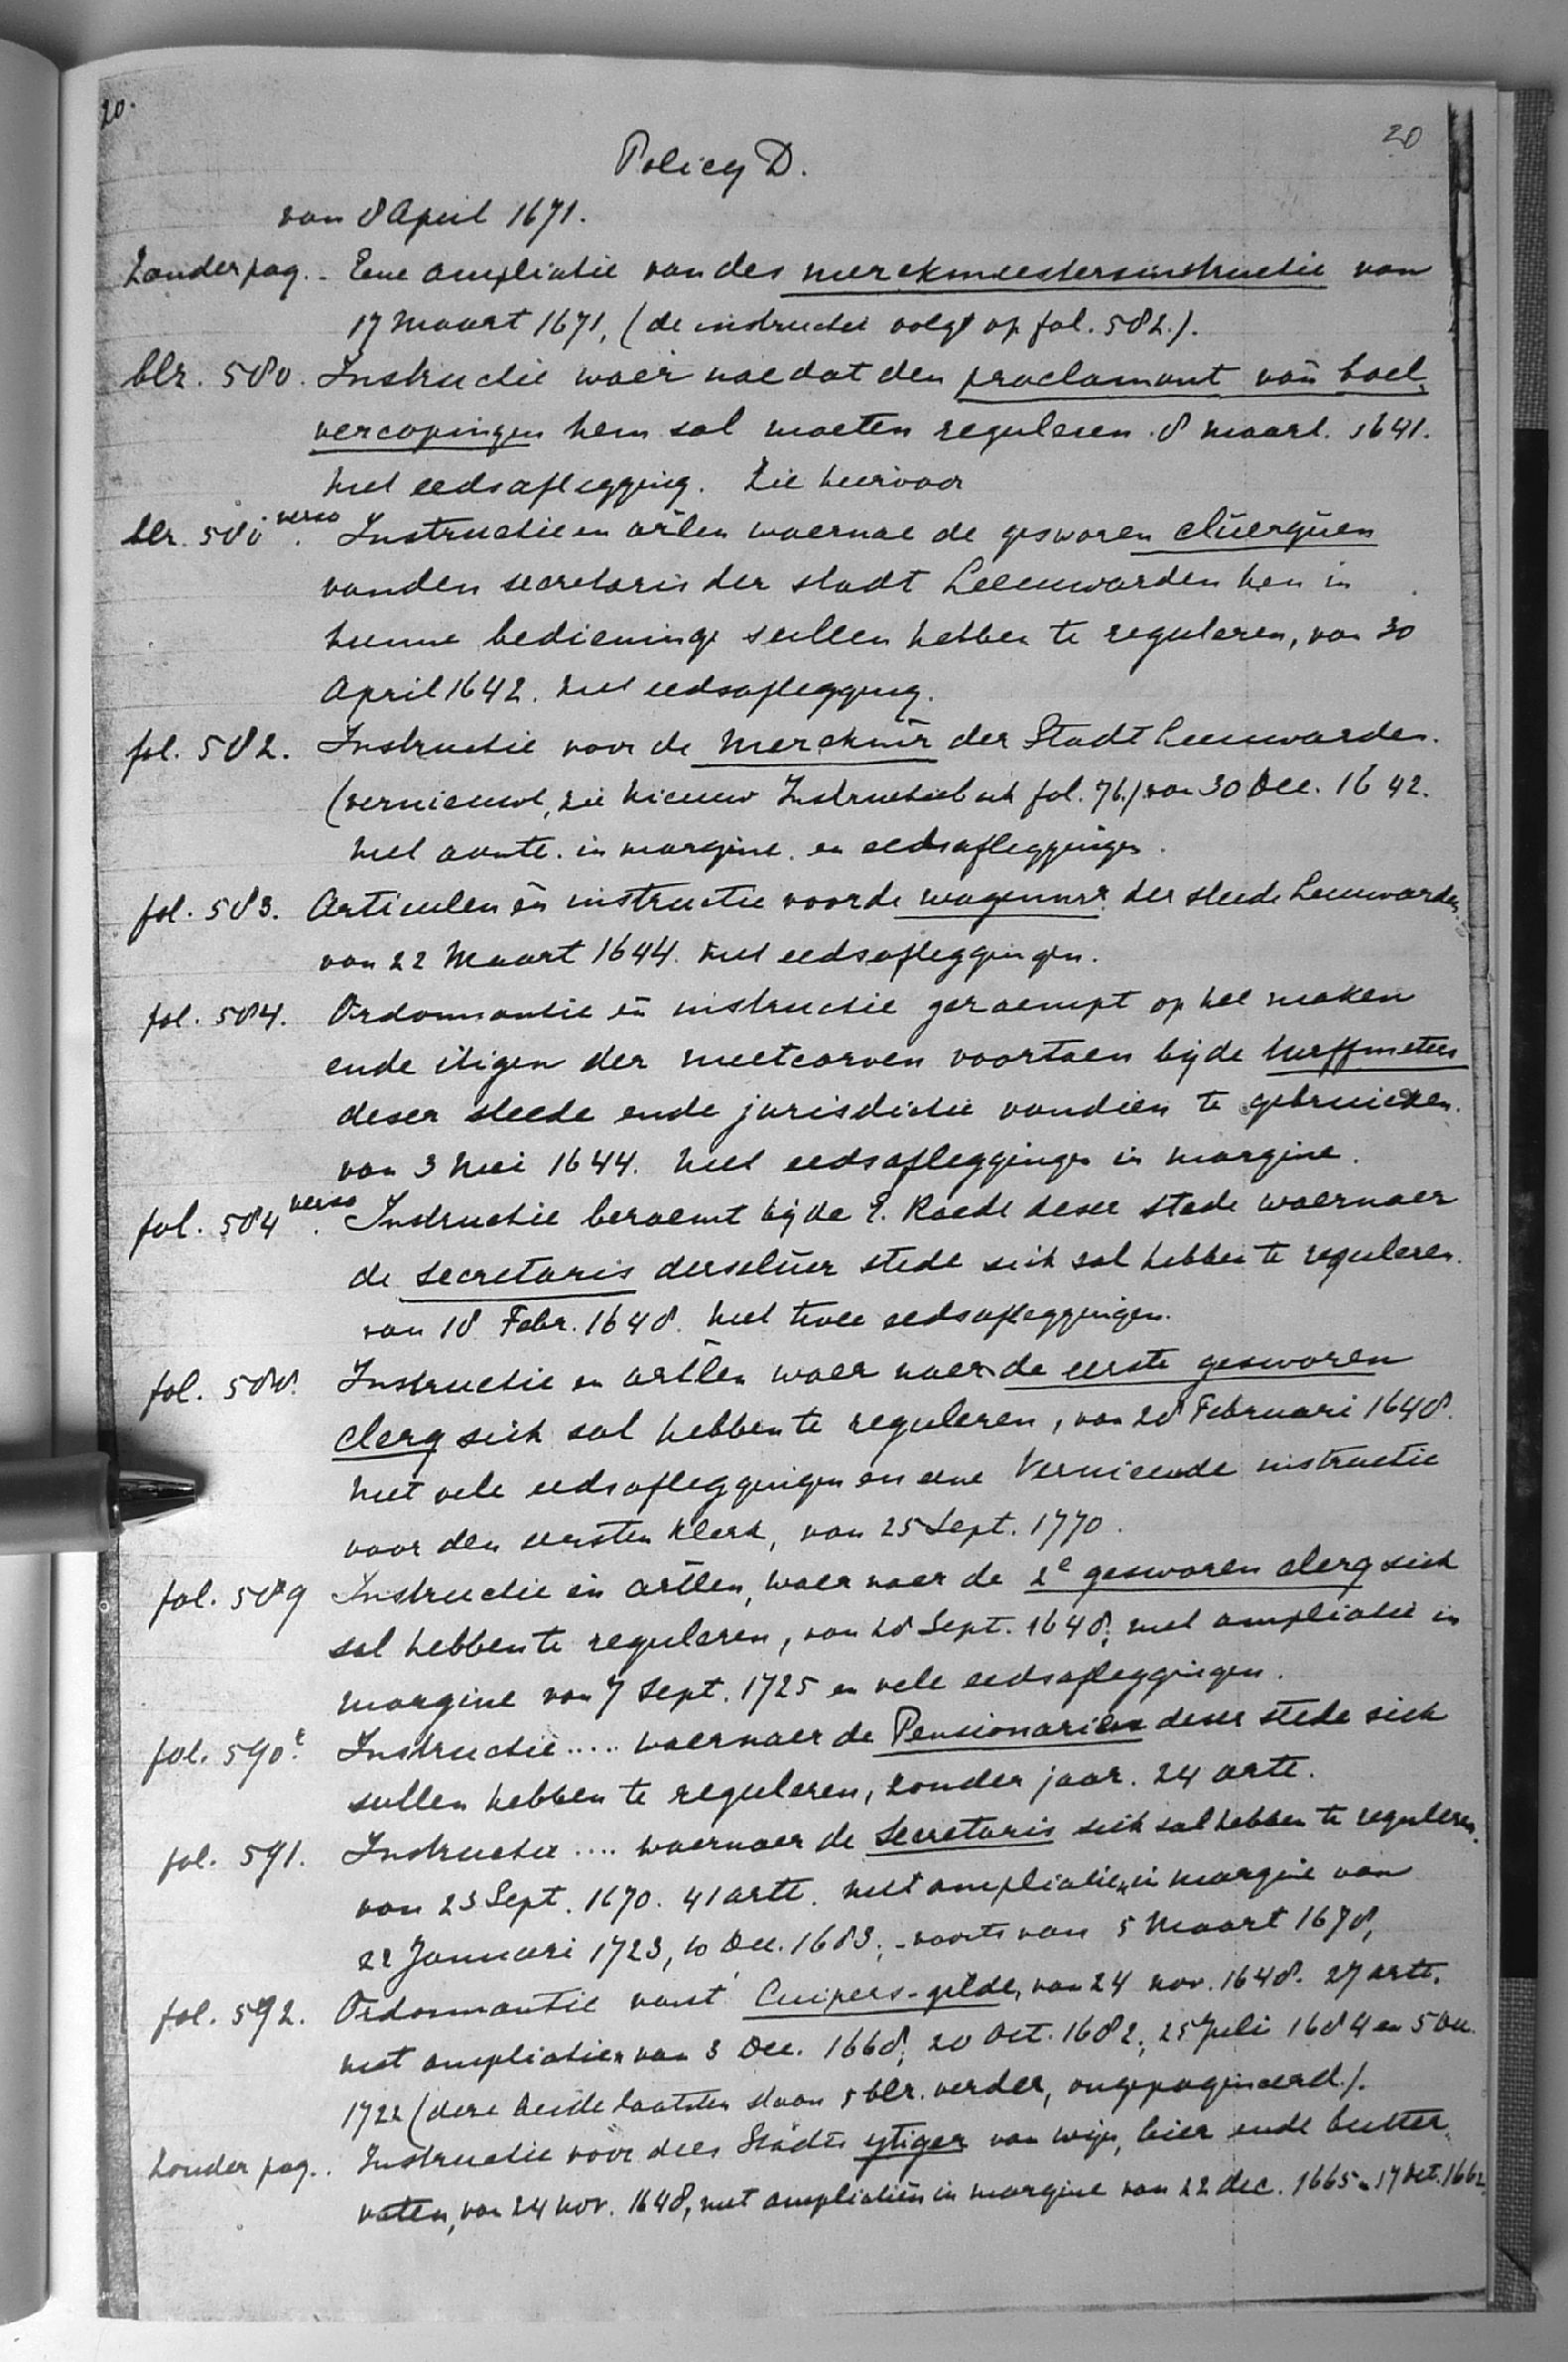 20. 20
Policy D.
van 8 April 1671.
Zonder pag. - Eene ampliatie van des merckmeestersinstructie van
17 Maart 1671, (de instructie volgt op fol. 582.).
blz. 580. Instructie waer nae dat den proclamant van boel-
vercopingen hem sal moeten reguleren. 8 Maart. 1641.
Met eedsaflegging. Zie hiervoor
blz. 580 verso. Instructie en artlen waernae de gesworen cluerquen
vanden secretaris der stadt Leeuwarden hen in
hunne bedieninge sullen hebben te reguleren, van 30
April 1642. Met eedsaflegging.
fol. 582. Instructie voor de Merckmr der Stadt Leeuwarden.
(vernieuwt, zie Nieuw Instructieboek fol. 76.) van 30 Dec. 1642.
Met aante. in margine. en eedsafleggingen.
fol. 583. Articulen en instructie voorde wagenmr. der stede Leeuwarden
van 22 Maart 1644. Met eedsafleggingen.
fol. 584. Ordonnantie en instructie geraempt op het maken
ende itigen der meetcorven voortaen bijde turffmeters
deser stede ende jurisdictie vandien te gebruicken.
van 3 Mei 1644. Met eedsafleggingen in margine.
fol. 584 verso. Instructie beraemt bij de E. Raede deser stede waernaer
de secretaris derselver stede sich sal hebben te reguleren.
van 18 Febr. 1648. Met twee eedsafleggingen.
fol. 588. Instructie en artlen waer naer de eerste gesworen
clerq sich sal hebben te reguleren, van 28 Februari 1648.
Met vele eedsafleggingen en eene Vernieuwde instructie
voor den eersten Klerk, van 25 Sept. 1770.
fol. 589 Instructie en artlen, waer naer de 2e gesworen clerq sich
sal hebben te reguleren, van 28 Sept. 1648; met ampliatie in
margine van 7 Sept. 1725 en vele eedsafleggingen.
fol. 590. Instructie ..... waernaer de Pensionarien deser stede sich
sullen hebben te reguleren, zonder jaar. 24 arte.
fol. 591. Instructie .... waernaer de Secretaris sich sal hebben te reguleren.
van 23 Sept. 1670. 41 arte. Met ampliatien in margine van
22 Januari 1723, 10 Dec. 1683; - voorts van 5 Maart 1678,
fol. 592. Ordonnantie vant Cuipers-gilde, van 24 nov. 1648. 27 arte.
met ampliatien van 3 Dec. 1668; 20 Oct. 1682; 25 Juli 1684 en 5 Dec.
1722 (deze beide laatsten staan 5 blz. verder, ongepagineerd.).
Zonder pag. Instructie voor dees Stadts ytiger van wijn, bier ende butter-
vaten, van 24 nov. 1648, met ampliatien in margine van 22 dec. 1665 en 17 Oct. 1662